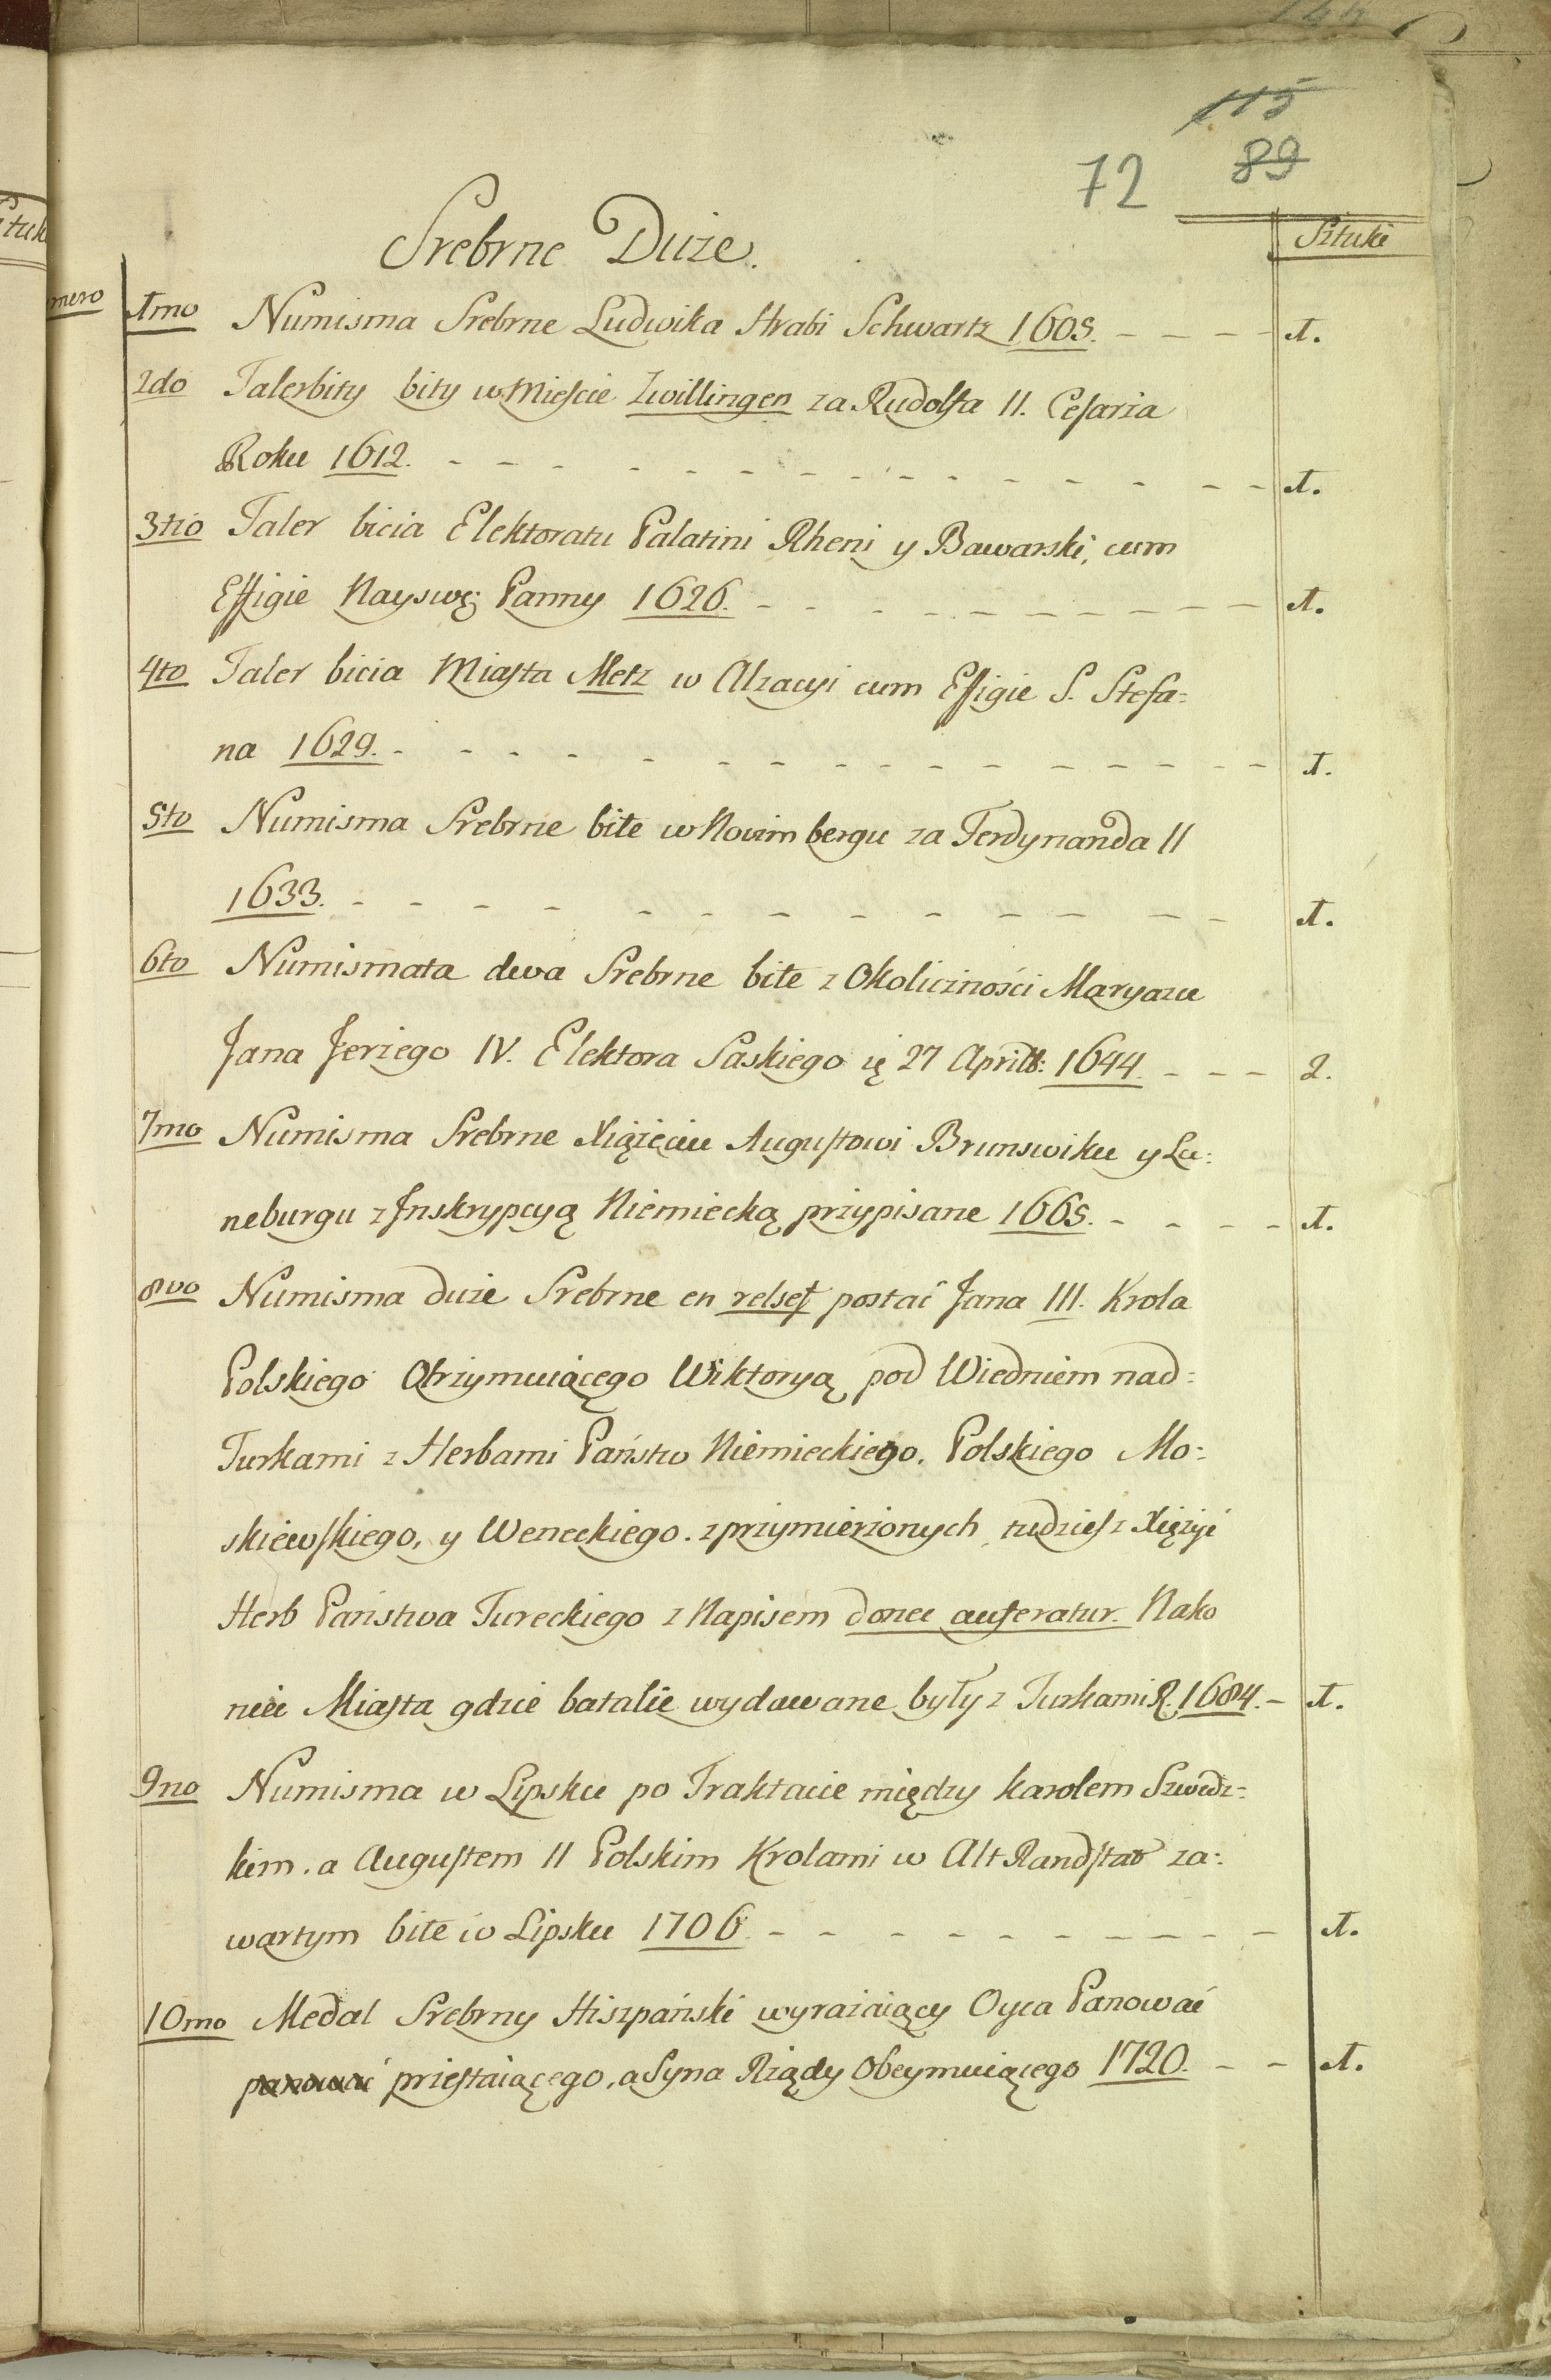 115
72 89
Srebrne Duże.
Sztuki
1mo Numisma Srebrne Ludwika Hrabi Schwartz 1605. - - - - 1.
2do Talerbity bity w Mieście Zwillingen za Rudolfa II. Cesarza
Roku 1612. - - - - - - - - - - - - 1.
3tio Taler bicia Elektoratu Palatini Rheni y Bawarski, cum
Effigie Nayswę: Panny 1626. - - - - - - - - - - 1.
4to Taler bicia Miasta Metz w Alzacyi cum Effigie S. Stefa:
na 1629. - - - - - - - - - - - - - - 1.
5to Numisma Srebrne bite w Norimbergu za Ferdynanda II
1633. - - - - - - - - - - - - 1.
6to Numismata dwa Srebrne bite z Okoliczności Maryazu
Jana Jerzego IV. Elektora Saskiego 27 Aprill: 1644. - - - 2.
7mo Numisma Srebrne Xiążęciu Augustowi Brunswiku y Lu:
neburgu z Jnskrypcyą Niemiecką przypisane 1665. - - - - 1.
8vo Numisma duże Srebrne en relsef postać Jana III. Krola
Polskiego Otrzymuiącego Wiktoryą pod Wiedniem nad:
Turkami z Herbami Państw Niemieckiego, Polskiego Mo:
skiewskiego, y Weneckiego. zprzymierzonych, tudziesz Xiężyć
Herb Państwa Tureckiego z Napisem donec auferatur. Nako
niec Miasta gdzie batalie wydawane były z Turkami R. 1684. - 1.
9no Numisma w Lipsku po Traktacie między Karolem Szwedz:
kim. a Augustem II Polskim Krolami w Alt Randstad za:
wartym bite w Lipsku 1706. - - - - - - - - - - 1.
10mo Medal Srebrny Hiszpański wyrażaiący Oyca Panować
panować przestaiącego, a Syna Rządy Obeymuiącego 1720. - - 1.